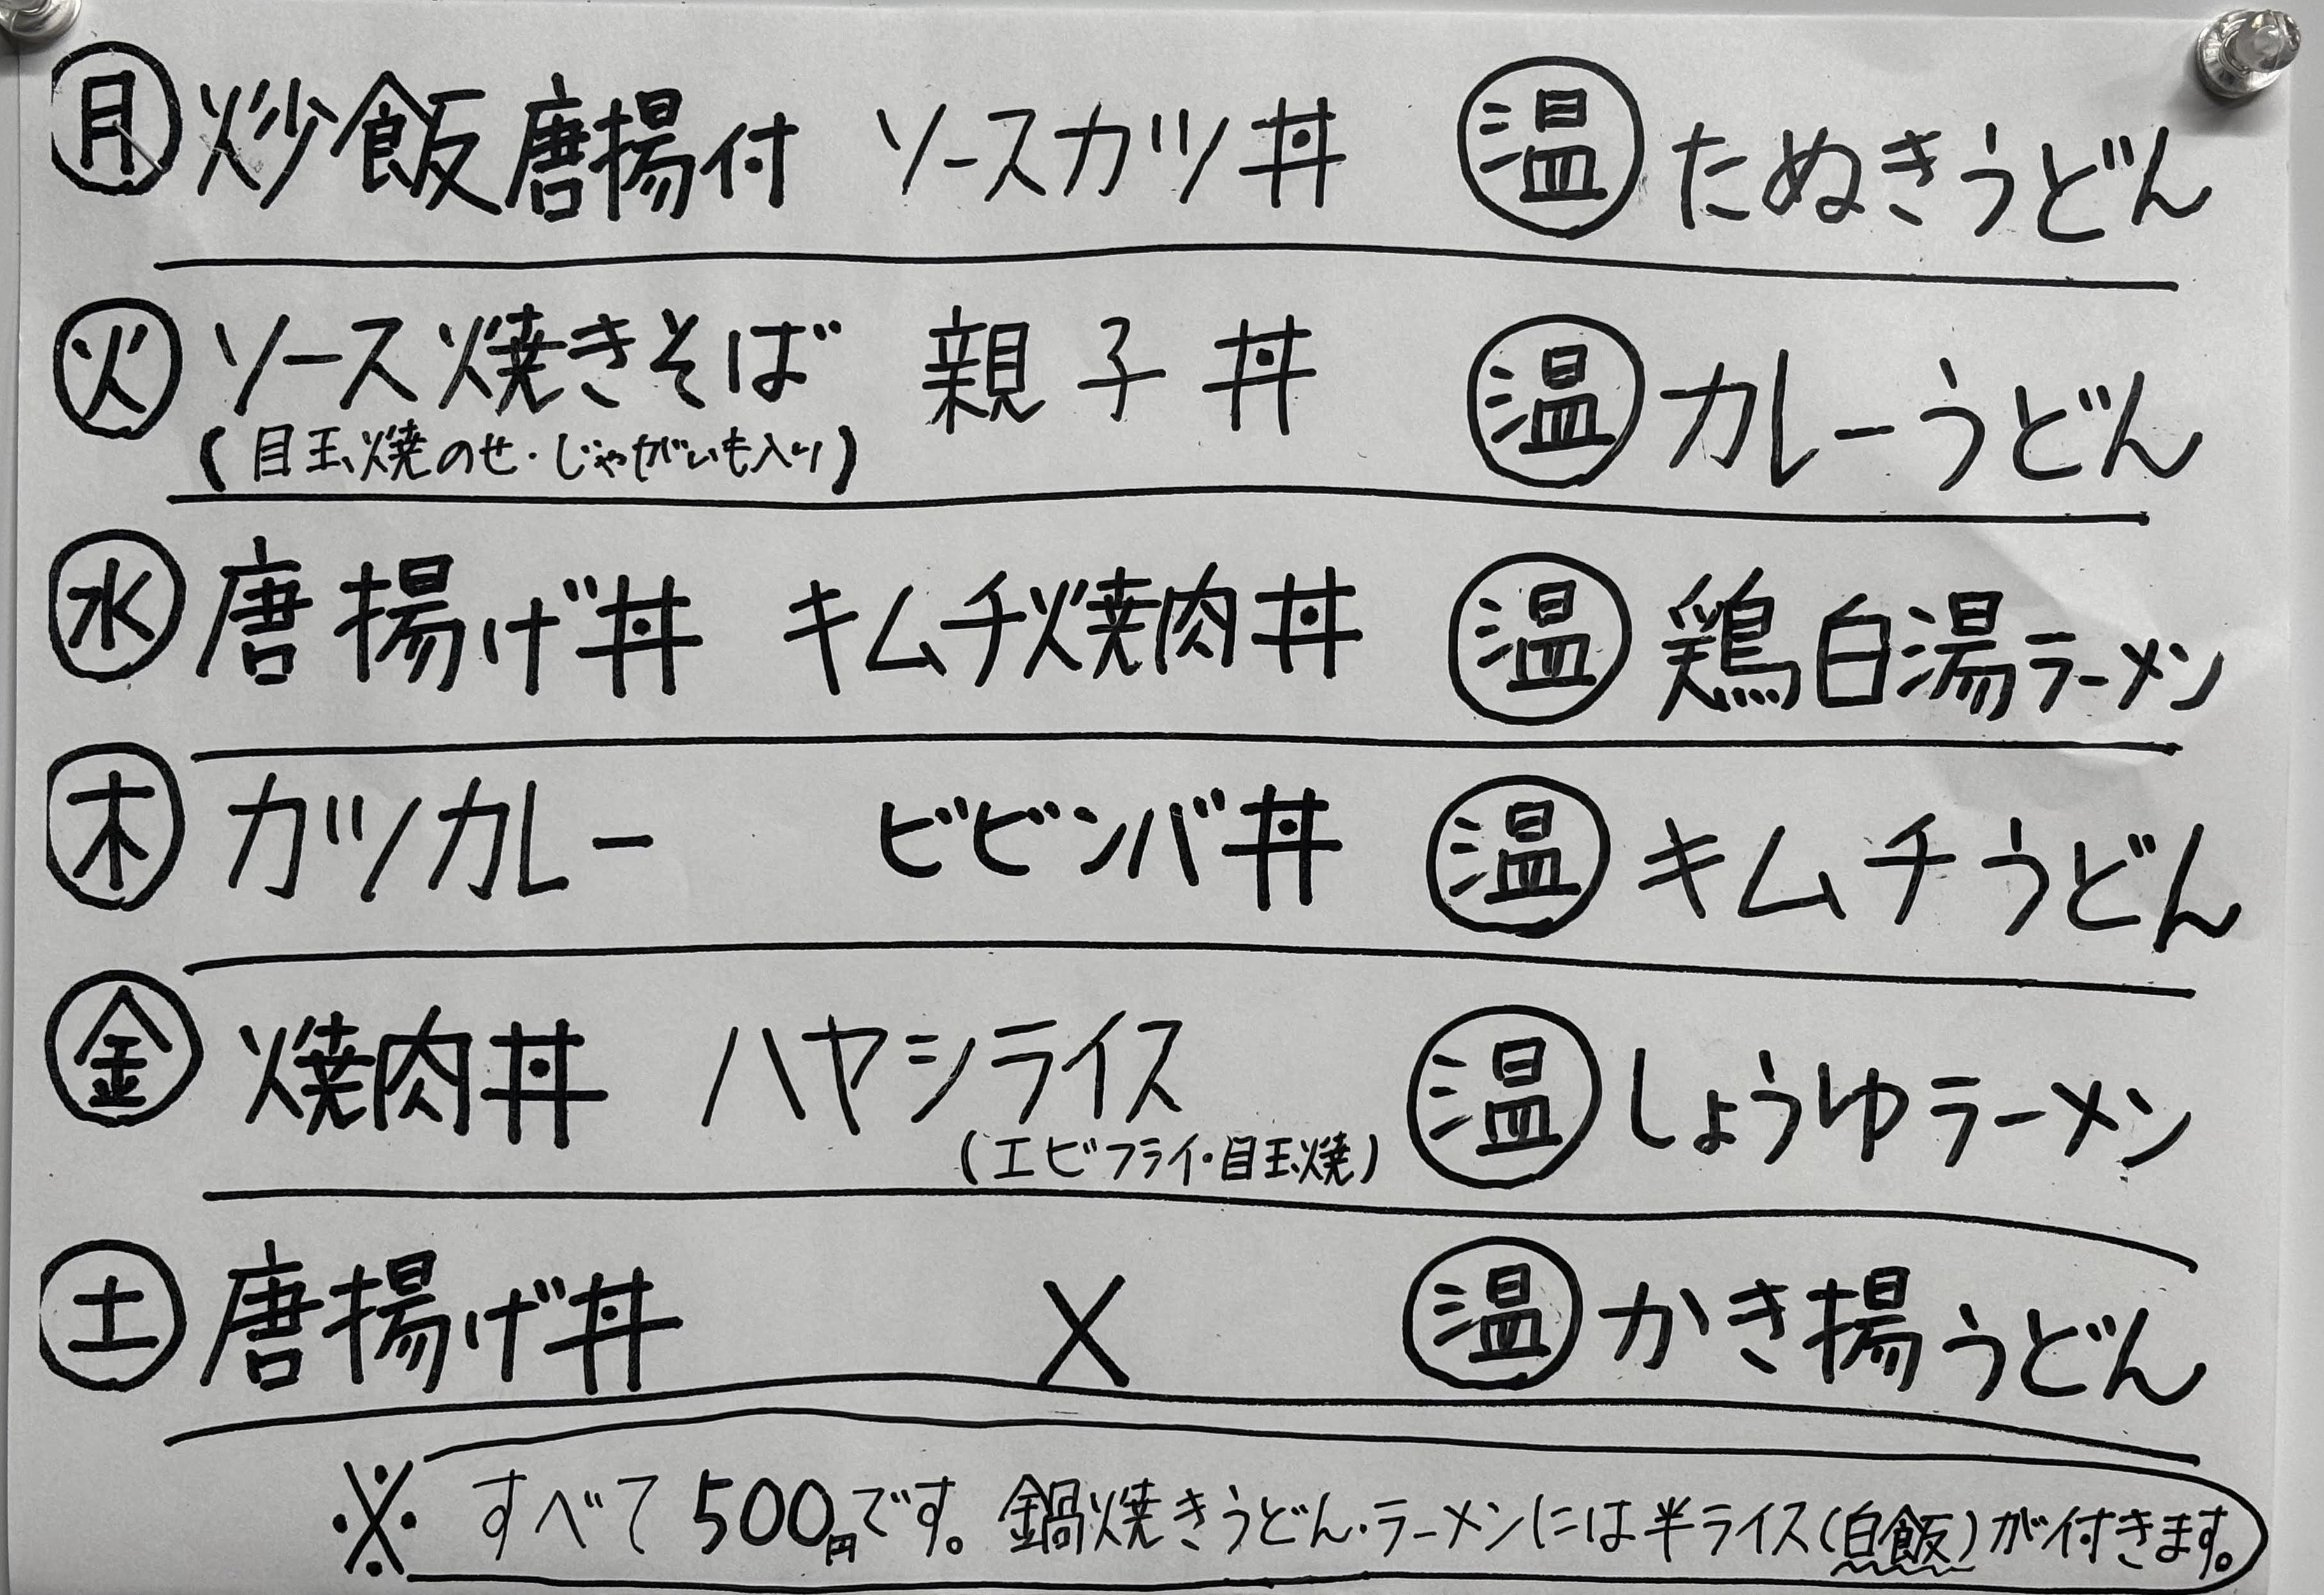 ㊊ 炒飯唐揚付 ソースカツ丼 ㊗温 たぬきうどん
㊋ ソース焼きそば 親子丼 温 カレーうどん
(目玉焼のせ・じゃがいも入り)
㊌ 唐揚げ丼 キムチ焼肉丼 温 鶏白湯ラーメン
㊍ カツカレー ビビンバ丼 温 キムチうどん
㊎ 焼肉丼 ハヤシライス 温 しょうゆラーメン
(エビフライ・目玉焼)
㊏ 唐揚げ丼 X 温 かき揚うどん
※ すべて500円です。鍋焼きうどん・ラーメンには半ライス(白飯)が付きます。